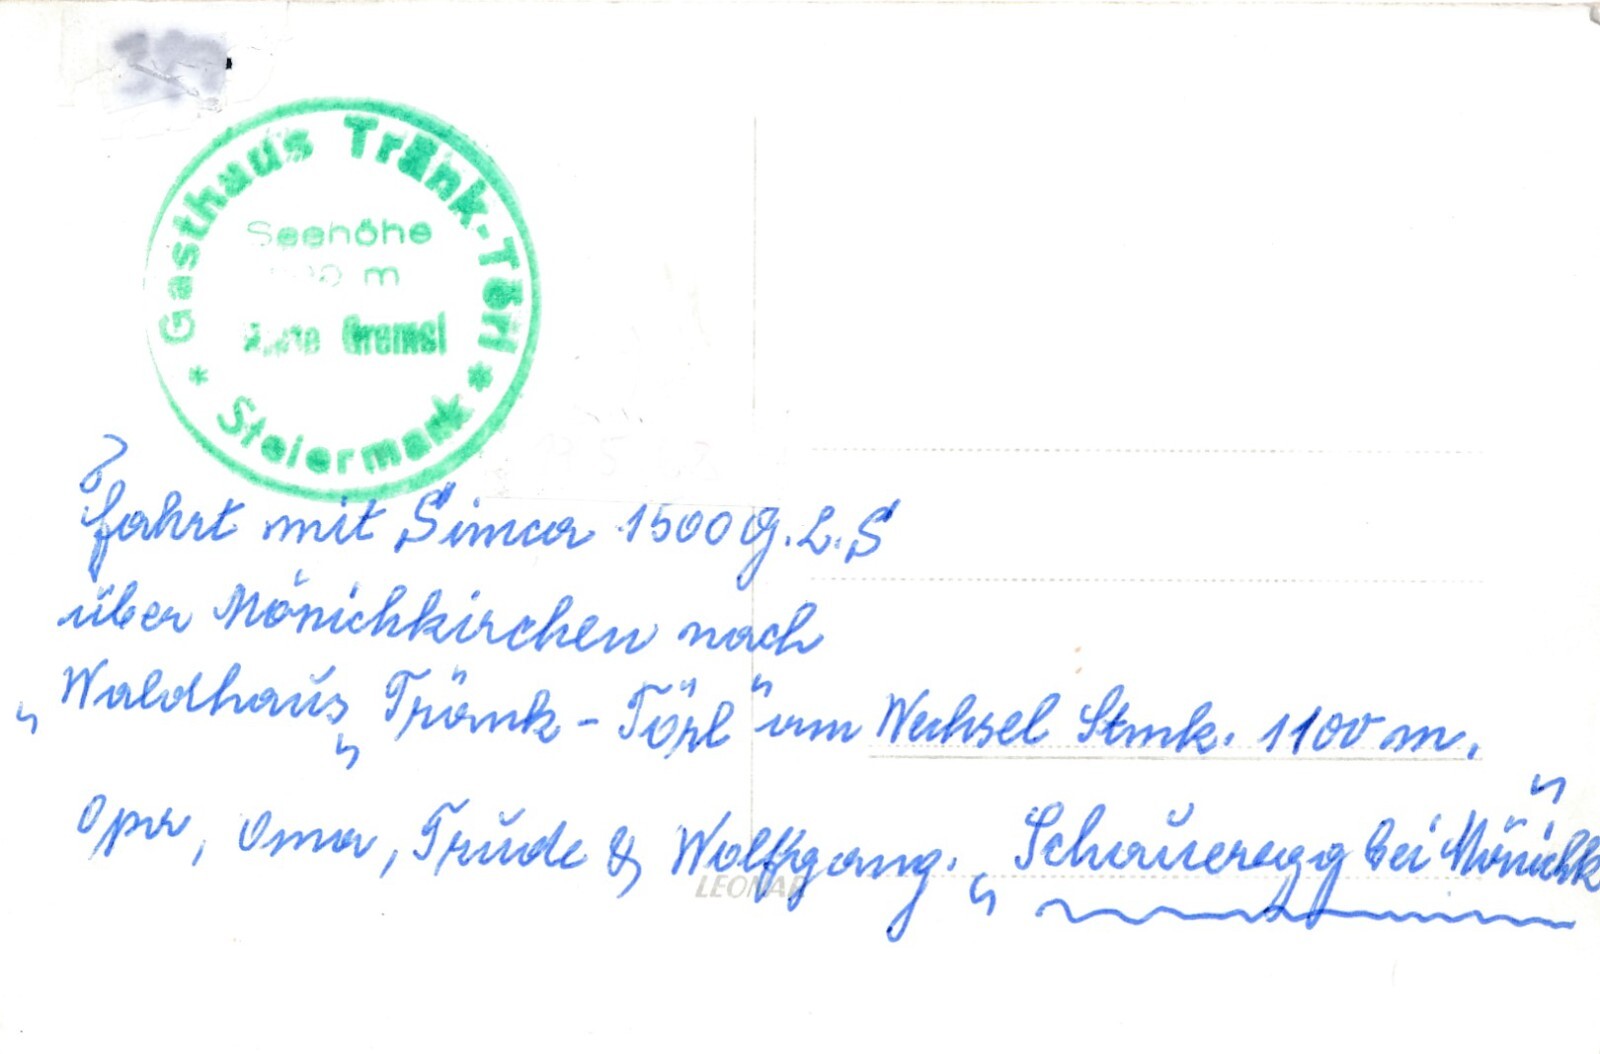 Gasthaus Tränk-Törl
Seehöhe
m
Gremsl
* Steiermark *
Fahrt mit Simca 1500 G.L.S
über Mönichkirchen nach
„Waldhaus „Tränk-Törl" am Wechsel Stmk. 1100 m.
Opa, Oma, Trude & Wolfgang. „Schaueregg bei Mönichk"
LEONAR